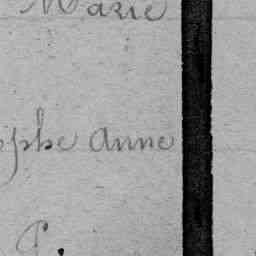 Marie
ephe Anne